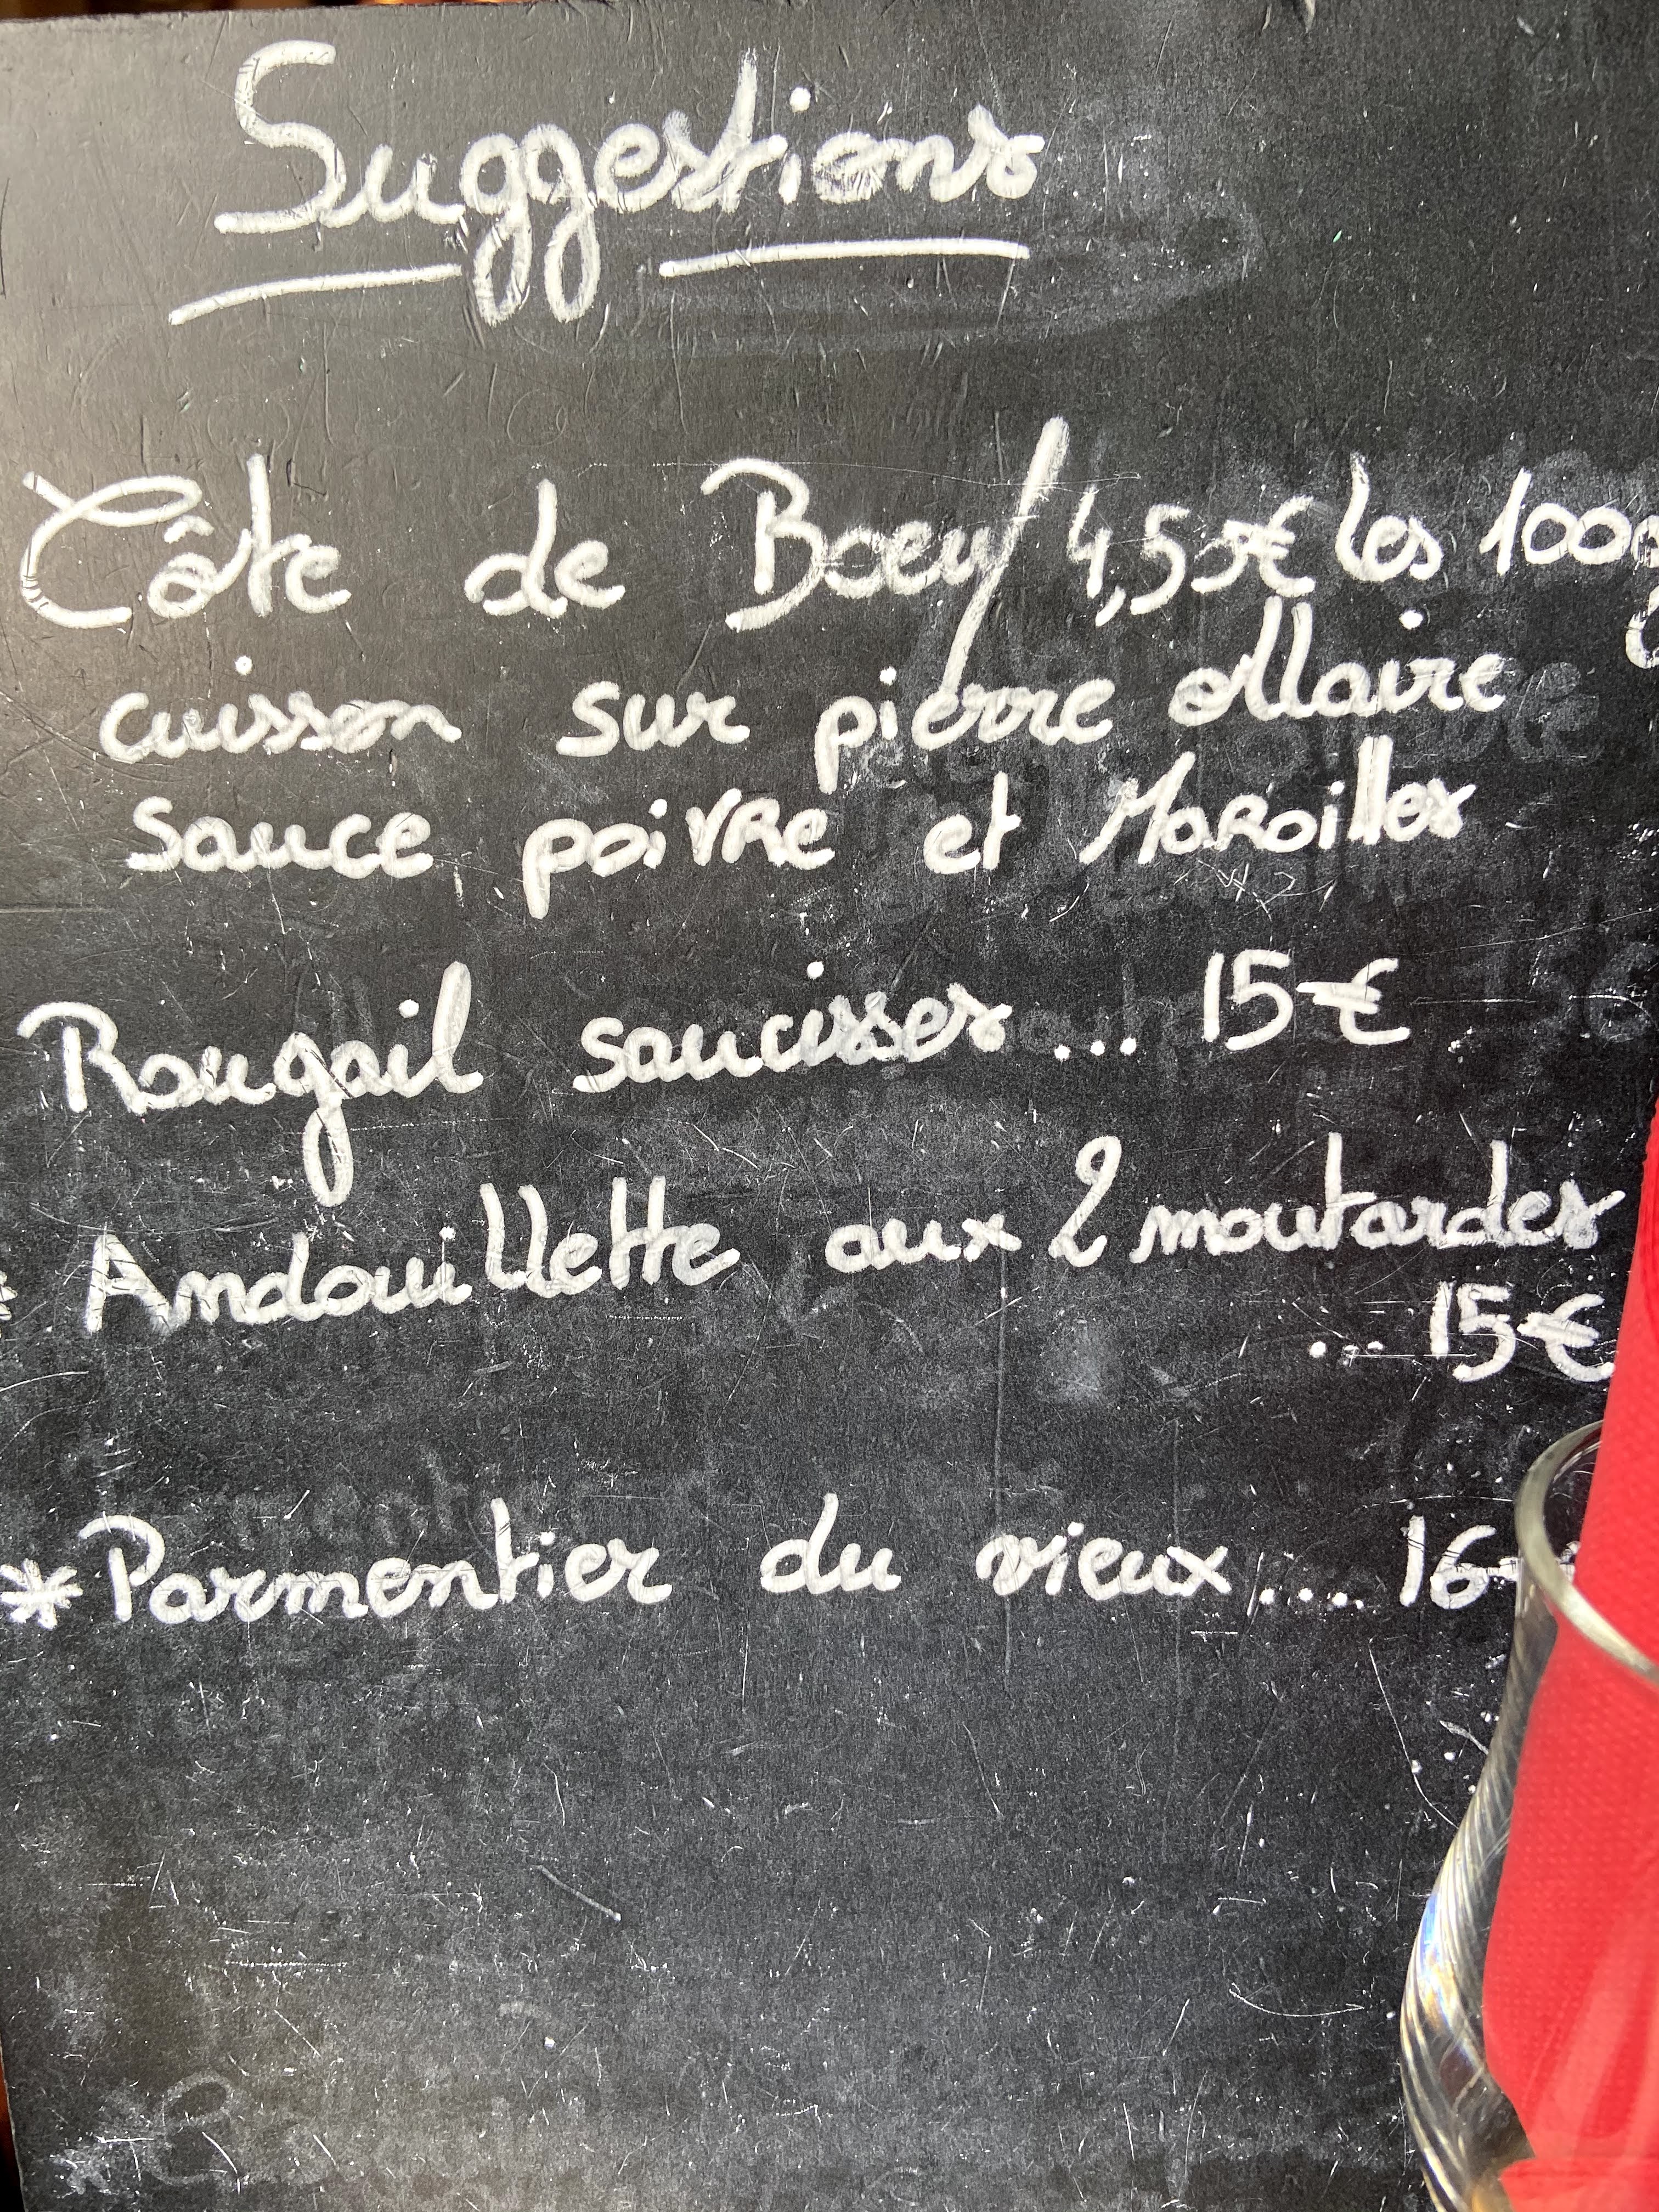 Suggestions
Côte de Boeuf 4,50€ les 100g
cuisson sur pierre ollaire
sauce poivre et Maroilles
Rougail saucisses ... 15€
* Andouillette aux 2 moutardes
... 15€
* Parmentier du vieux .... 16€